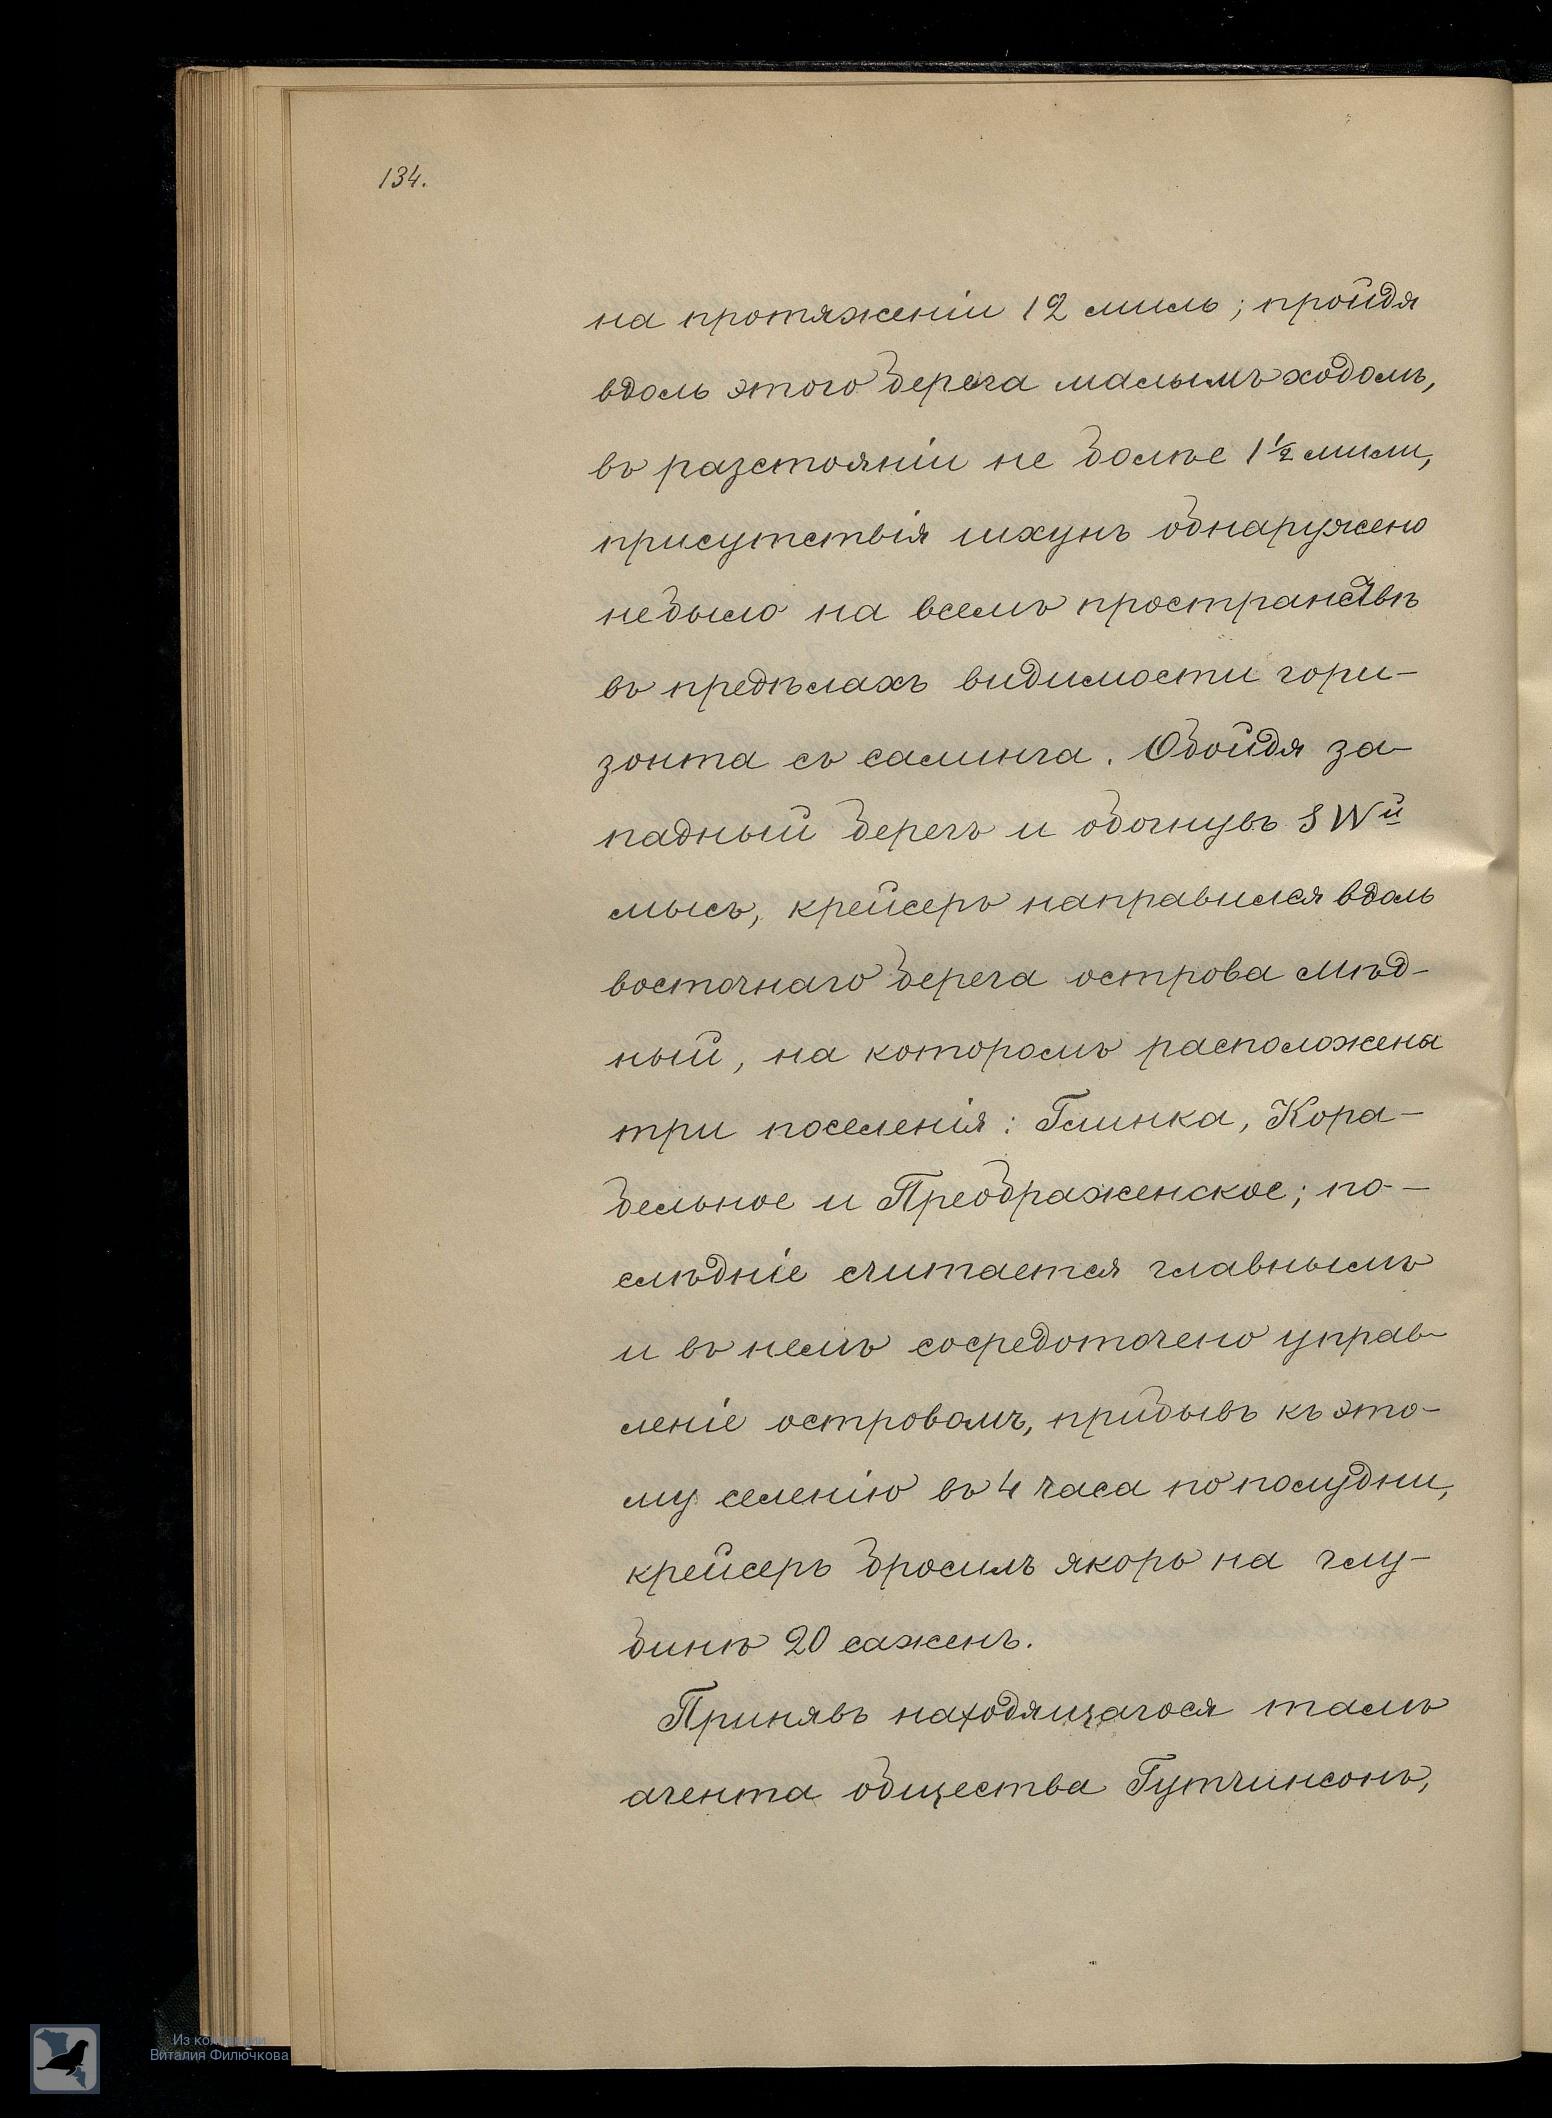 134.
на протяженіи 12 миль; пройдя
вдоль этого берега малымъ ходомъ,
въ разстояніи не болѣе 1 ½ мили,
присутствія шхунъ обнаружено
небыло на всемъ пространствѣ
въ предѣлахъ видимости гори-
зонта съ салинга. Обойдя за-
падный берегъ и обогнувъ SWй
мысъ, крейсеръ направился вдоль
восточнаго берега острова Мѣд-
ный, на которомъ расположены
три поселенія: Глинка, Кора-
бельное и Преображенское; по-
слѣдніе считается главнымъ
и въ немъ сосредоточено управ-
леніе островомъ, прибывъ къ это-
му селенію въ 4 часа по полудни,
крейсеръ бросилъ якорь на глу-
бинѣ 20 саженъ.
Принявъ находящагося тамъ
агента общества Гутчинсонъ,
Из коллекции
Виталия Филючкова